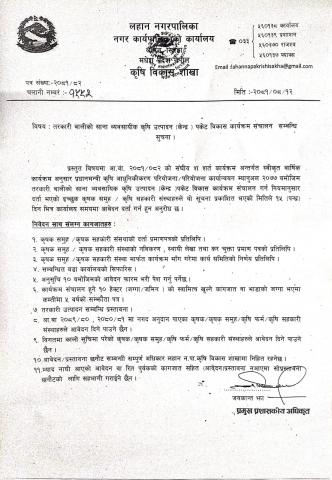 लहान नगरपालिका
नगर कार्यपालिकाको कार्यालय
मधेश प्रदेश, नेपाल
कृषि विकास शाखा
☎ ०३३
५६०१९८ कार्यालय
५६०१९१ प्रशासन
५६०३७७ राजस्व
Email :lahannapakrishisakha@gmail.com
पत्र संख्या:-२०८१/८२
चलानी नम्बर:-
मिति:-२०८१/०८/१२
विषय : तरकारी बालीको साना व्यवसायीक कृषि उत्पादन (केन्द्र) पकेट विकास कार्यक्रम संचालन सम्बन्धि
सूचना।
प्रस्तुत विषयमा आ.वं. २०८१/०८२ को संघीय शःशर्त कार्यक्रम अन्तर्गत स्वीकृत वार्षिक
कार्यक्रम अनुसार प्रधानमन्त्री कृषि आधुनिकीकरण परियोजना/परियोजना कार्यान्वयन म्यानुअल २०७७ बमोजिम
तरकारी बालीको साना व्यवसायिक कृषि उत्पादन (केन्द्र)पकेट विकास कार्यक्रम संचालन गर्न नियमानुसार
दर्ता भएको इच्छुक कृषक समुह / कृषि सहकारी संस्थाहरुले यो सूचना प्रकाशित भएको मितिले १५ (पन्ध्र)
दिन भित्र कार्यालय समयमा आवेदन दर्ता गर्न हुन अनुरोध छ।
निवेदन साथ संलग्न कागजातहरु :
१. कृषक समुह /कृषक सहकारी संस्थाको दर्ता प्रमाणपत्रको प्रतिलिपि।
२. कृषक समुह / कृषक सहकारी संस्थाको नविकरण, स्थायी लेखा तथा कर चुक्ता प्रमाण पत्रको प्रतिलिपि।
३. कृषक समुह /कृषक सहकारी संस्था मार्फत कार्यक्रम माँग गरेमा कार्य समितिको निर्णय प्रतिलिपि।
४. सम्बन्धित वडा कार्यालयको सिफारिस।
५. अनुसुचि १० बमोजिमको आवेदन फारम भरी पेश गर्नु पर्नेछ।
६. कार्यक्रम संचालन हुने १० हेक्टर (जग्गा/जमिन) को स्वामित्व खुल्ने कागजात वा भाडाको जग्गा भएमा
कम्तीमा ५ वर्षको सम्झौता पत्र।
७. तरकारी उत्पादन सम्बन्धि प्रस्तावना।
८. आ.वा २०७९/८०, २०८०/८१ मा नगद अनुदान पाएका कृषक/कृषक समुह/कृषि फर्म/कृषि सहकारी
संस्थाहरुले आवेदन दिन पाउने छैन।
९. विगतमा काली सुचिमा परेको कृषक/कृषक समुह/कृषि फर्म/कृषि सहकारी संस्थाहरुले आवेदन दिन पाउने छैन।
१०.आवेदन/प्रस्तावना छनौट सम्बन्धी सम्पूर्ण अधिकार लहान न.पा.कृषि विकास शाखामा निहित रहनेछ।
११.म्याद नाघी आएको आवेदन वा रित पुर्वकको कागजात सहित (आवेदन)प्रस्तावना नआएमा सोप्रस्तावना
छनौटको लागि सहभागी गराईने छैन।
जयकान्त झा
प्रमुख प्रशासकीय अधिकृत